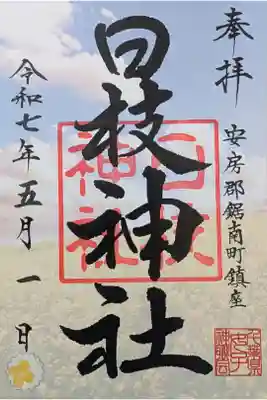 奉拝
安房郡鋸南町鎮座
日枝神社
令和七年五月一日
日枝
神社